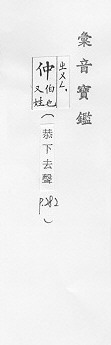 彙音寶鑑
ㄓㄨㄥˋ
仲 伯也
又姓
(恭下去聲